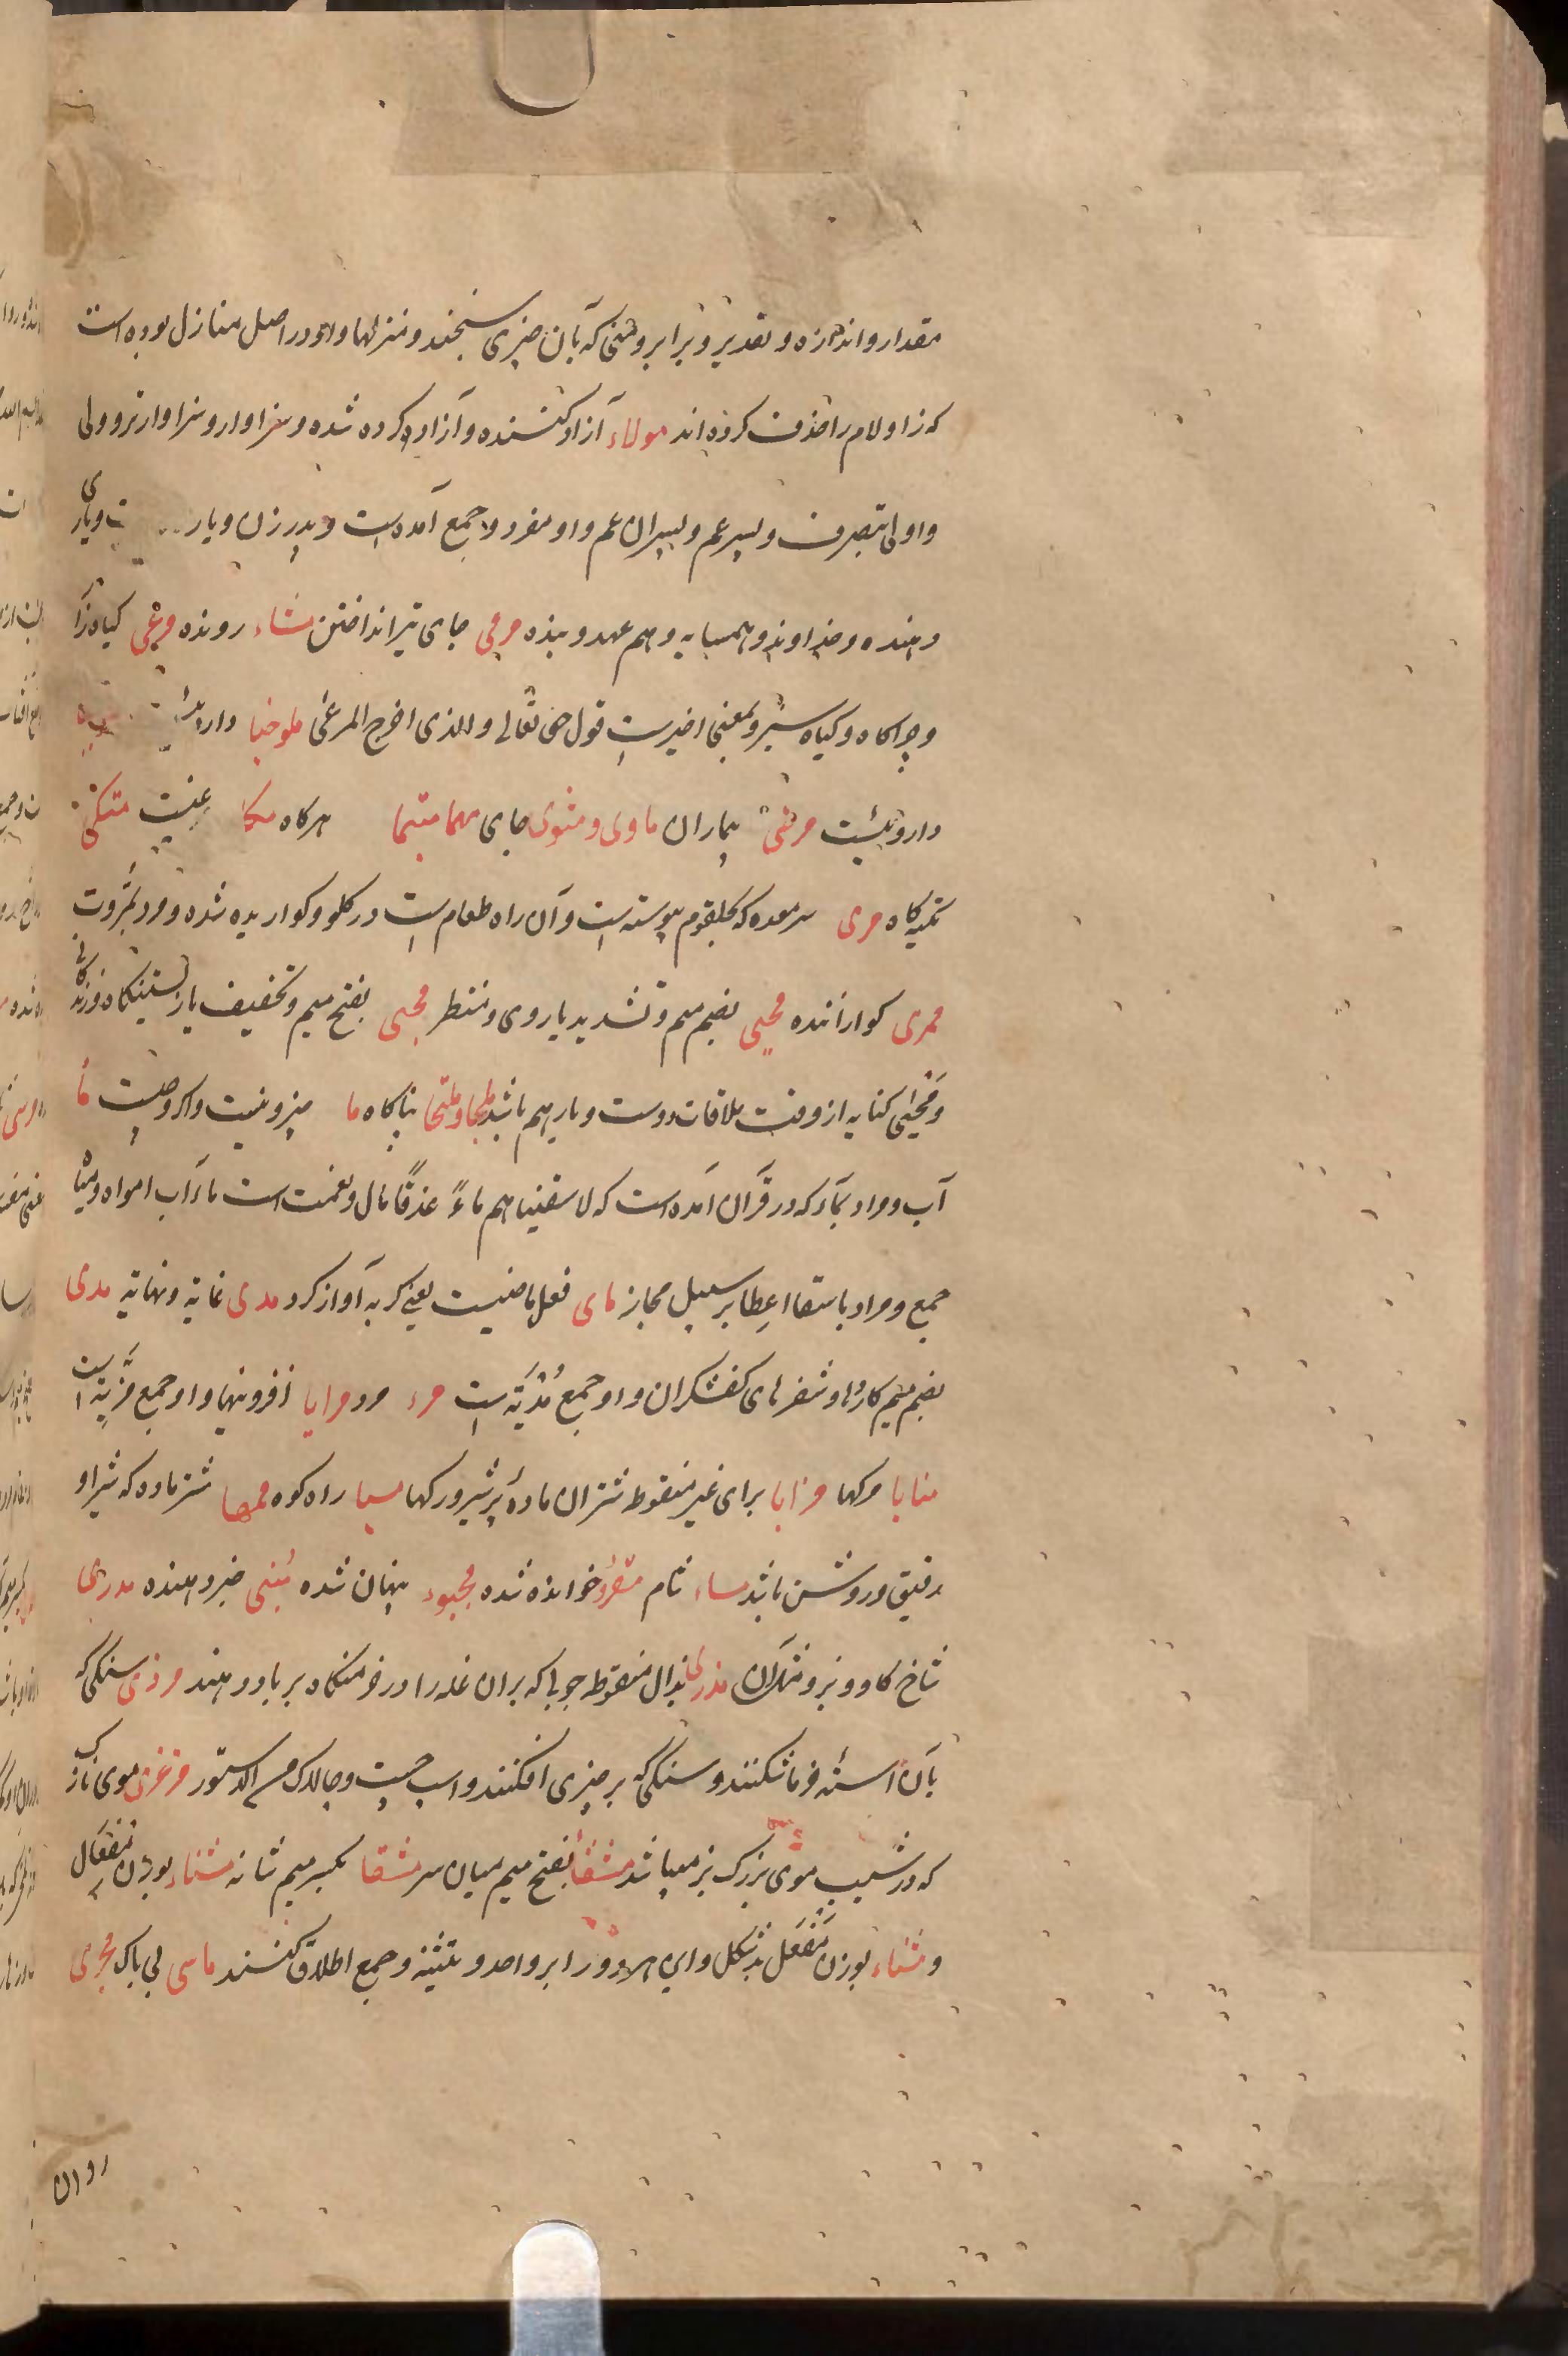 مقدار و اندازه و تقدیر و برابر و منی که بآن چیزی سنجند و منزلها و او در اصل منازل بوده است
که زا و لام را حذف کرده اند مولاء آزاد کننده و آزاد کرده شده و سزاوار و سزاوارتر و ولی
و اولی بتصرف و پسر عم و پسران عم و او مفرد و جمع آمده است و پدر زن و یار و یاری
دهنده و خداوند و همسایه و هم عهد و بنده مرمی جای تیر انداختن مشاء رونده مرعی کیاه زا
و چراکاه و کیاه سبز و بمعنی اخیرست قول حق تعالی والذی اخرج المرعی ملوخیا
داروئیست مرضی بیماران ماوی و مثوی جای مهما متیما هرکاه متکی
تکیه کاه مری سر معده که بحلقوم پیوسته است و آن راه طعام است در کلو و کواریده شده و مرد بمروت
ممری کواراننده محیی بضم میم و تشدید یا روی و منتظر محیی بفتح میم و تخفیف یا زیستنکاه و زندکانی
و محیی کنایه از وقت ملاقات دوست و یار هم باشد ملجا و ملتجا پناکاه ما چیز و نیست و
آب و مراد بماء که در قرآن آمده است که لاسقیناهم ماءً غدقًا مال و نعمت است ماء آب امواه و میاه
جمع و مراد باسقا اعطا بر سبیل مجاز مای فعل ماضیست یعنی کربه آواز کرد مدی غایة و نهایة مدی
بضم میم کاردها و شفرهای کفشکران و او جمع مُدْیَة است مرء مرد مزایا افزونیها و او جمع مَزِیَّة است
منایا مرکها مرایا برای غیر منقوط شتران مادهٔ پر شیر و رکها مسیا راه کوه شتر ماده که شیر او
رقیق و روشن باشد مساء شام مقرؤ خوانده شده مخبوء پنهان شده مُنبی خبر دهنده مدری
شاخ کاو و نیز و مذری بذال منقوط چوبی که بران غله را در خرمنکاه بر باد دهند مردی سنکی که
بآن استه خرما شکنند و سنکی که بر چیزی افکنند و اسب چست و چالاک مرعزی موی نازک
که در شیب موی بزرک بز میباشد مشقأ بفتح میم میان سر مشقا بکسر میم شانه مشناء بوزن مِفعَال
و مشناء بوزن مَفعَل بدشکل و این هر دو را بر واحد و تثنیه و جمع اطلاق کنند ماسی بی باک مجری
روان